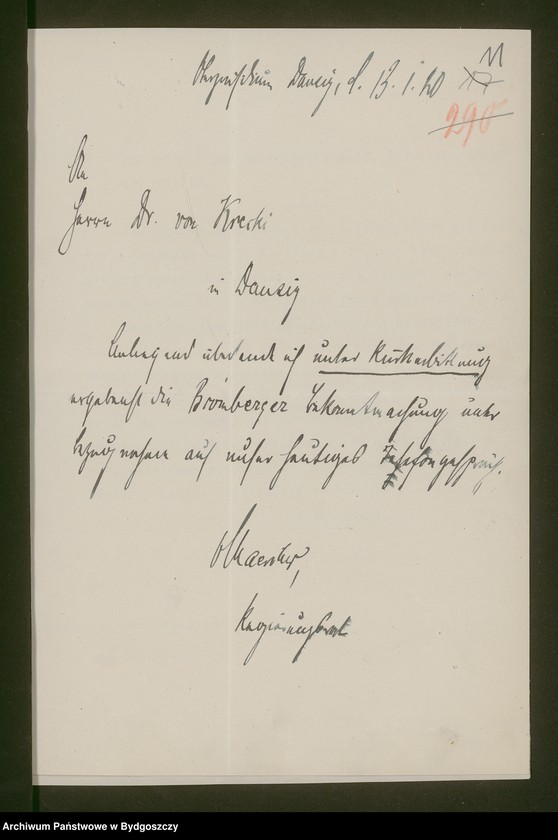 11
17
Oberpräsidium Danzig, d. 13. 1. 20
290
An
Herrn Dr. von Krecki
in Danzig
Anliegend übersende ich unter Rückerbittung
ergebenst die Bromberger Bekanntmachung unter
Bezugnahme auf unser heutiges Telefongespräch.
Regierungsrat
Archiwum Państwowe w Bydgoszczy